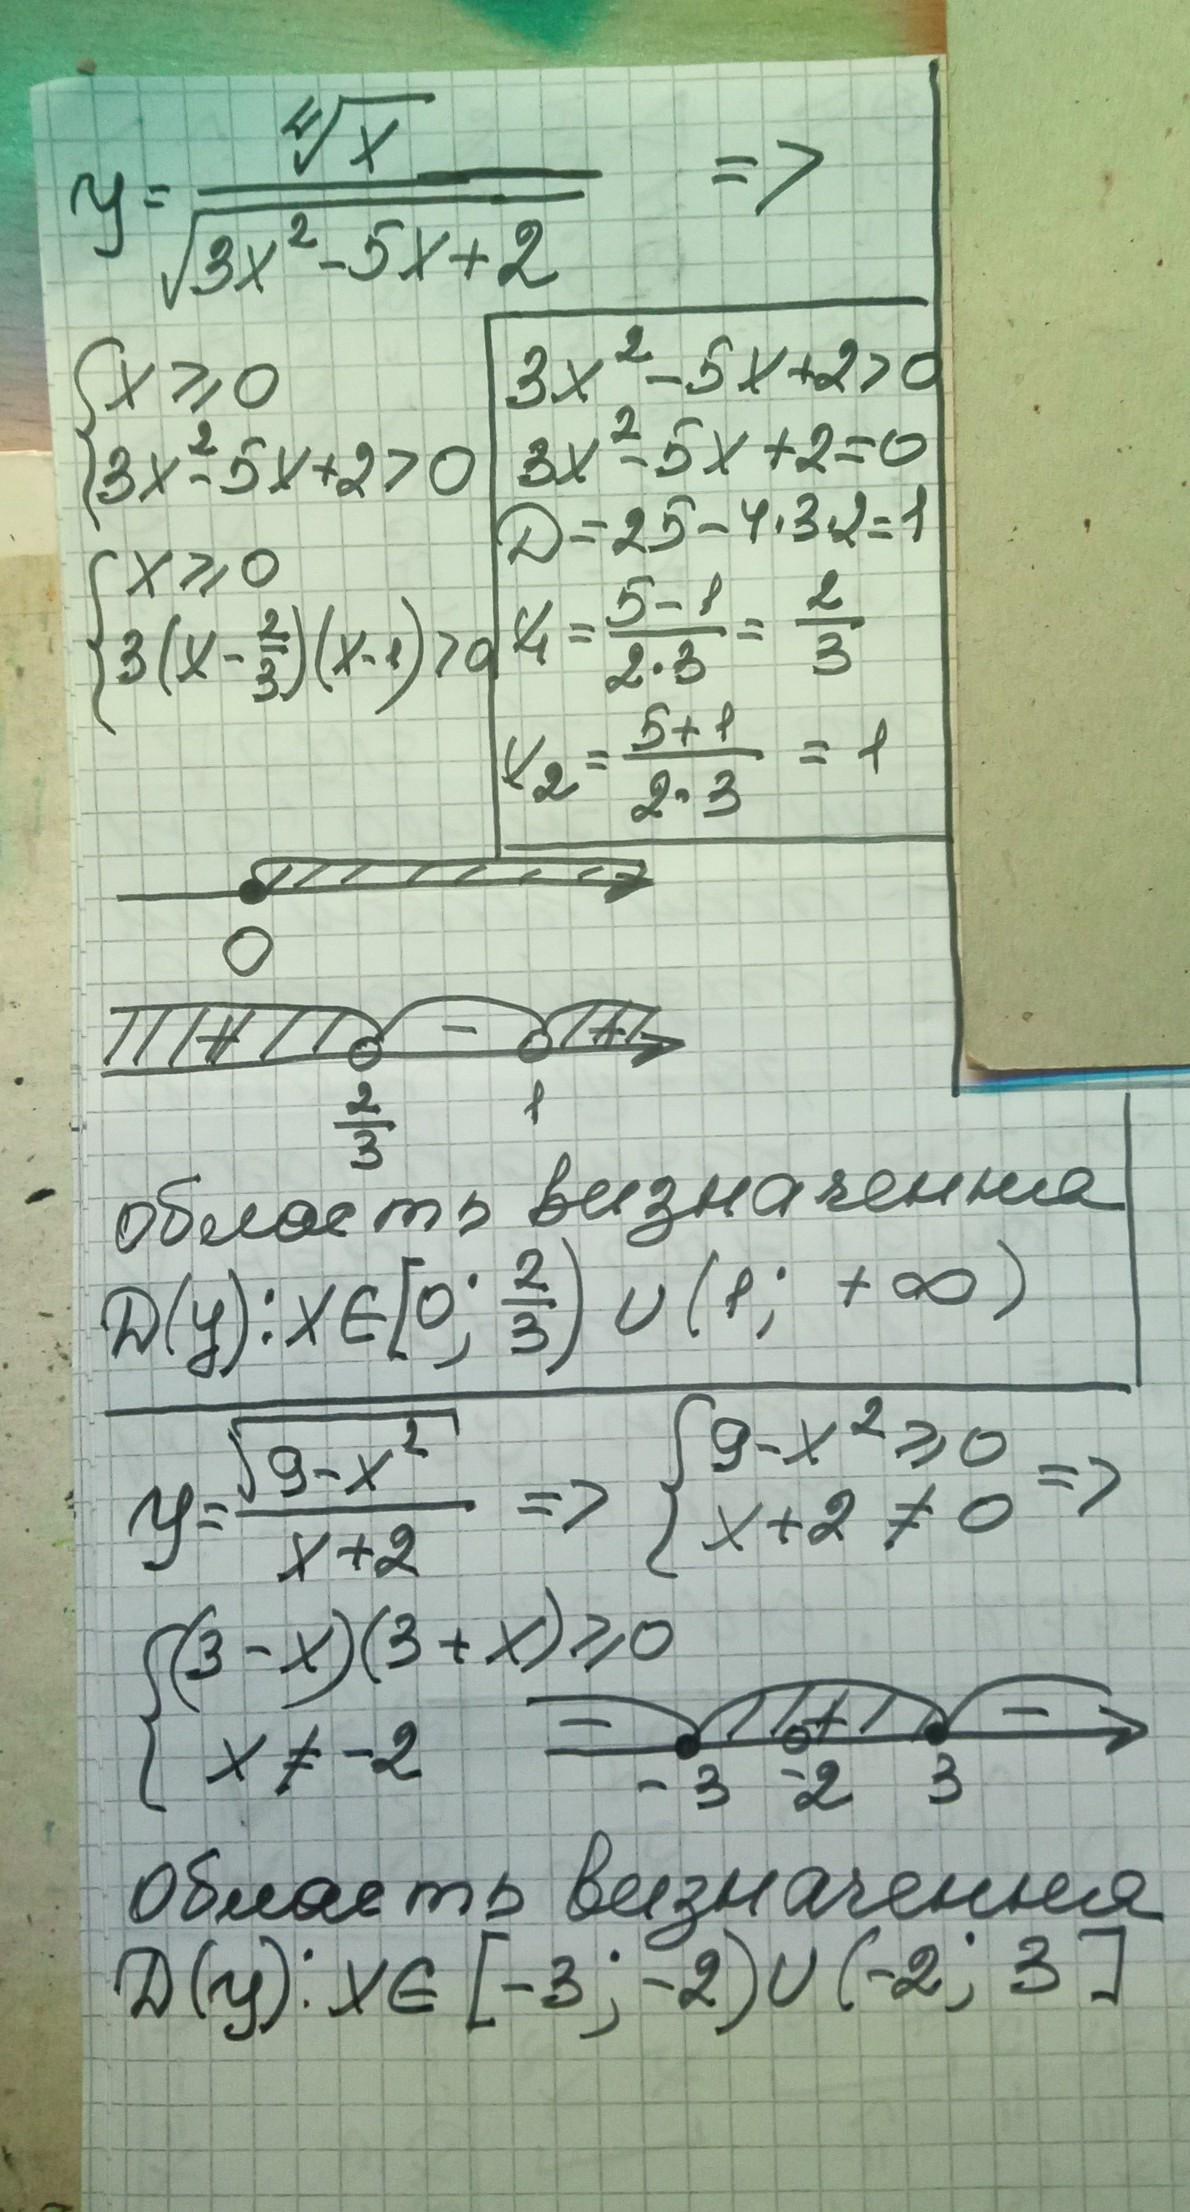 y = ⁴√x / √(3x² - 5x + 2) =>
{ x ⩾ 0
3x² - 5x + 2 > 0
{ x ⩾ 0
3(x - 2/3)(x - 1) > 0
3x² - 5x + 2 > 0
3x² - 5x + 2 = 0
D = 25 - 4·3·2 = 1
x₁ = (5 - 1)/(2·3) = 2/3
x₂ = (5 + 1)/(2·3) = 1
0
+ - +
2/3 1
область визначення
D(y): x ∈ [0; 2/3) ∪ (1; +∞)
y = √(9 - x²) / (x + 2) => { 9 - x² ⩾ 0
x + 2 ≠ 0 =>
{ (3 - x)(3 + x) ⩾ 0
x ≠ -2
- + -
-3 -2 3
область визначення
D(y): x ∈ [-3; -2) ∪ (-2; 3]